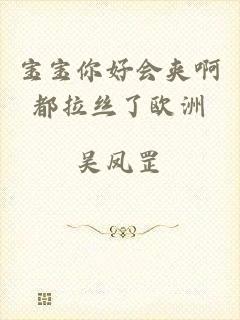 宝宝你好会夹啊
都拉丝了欧洲
吴凤罡